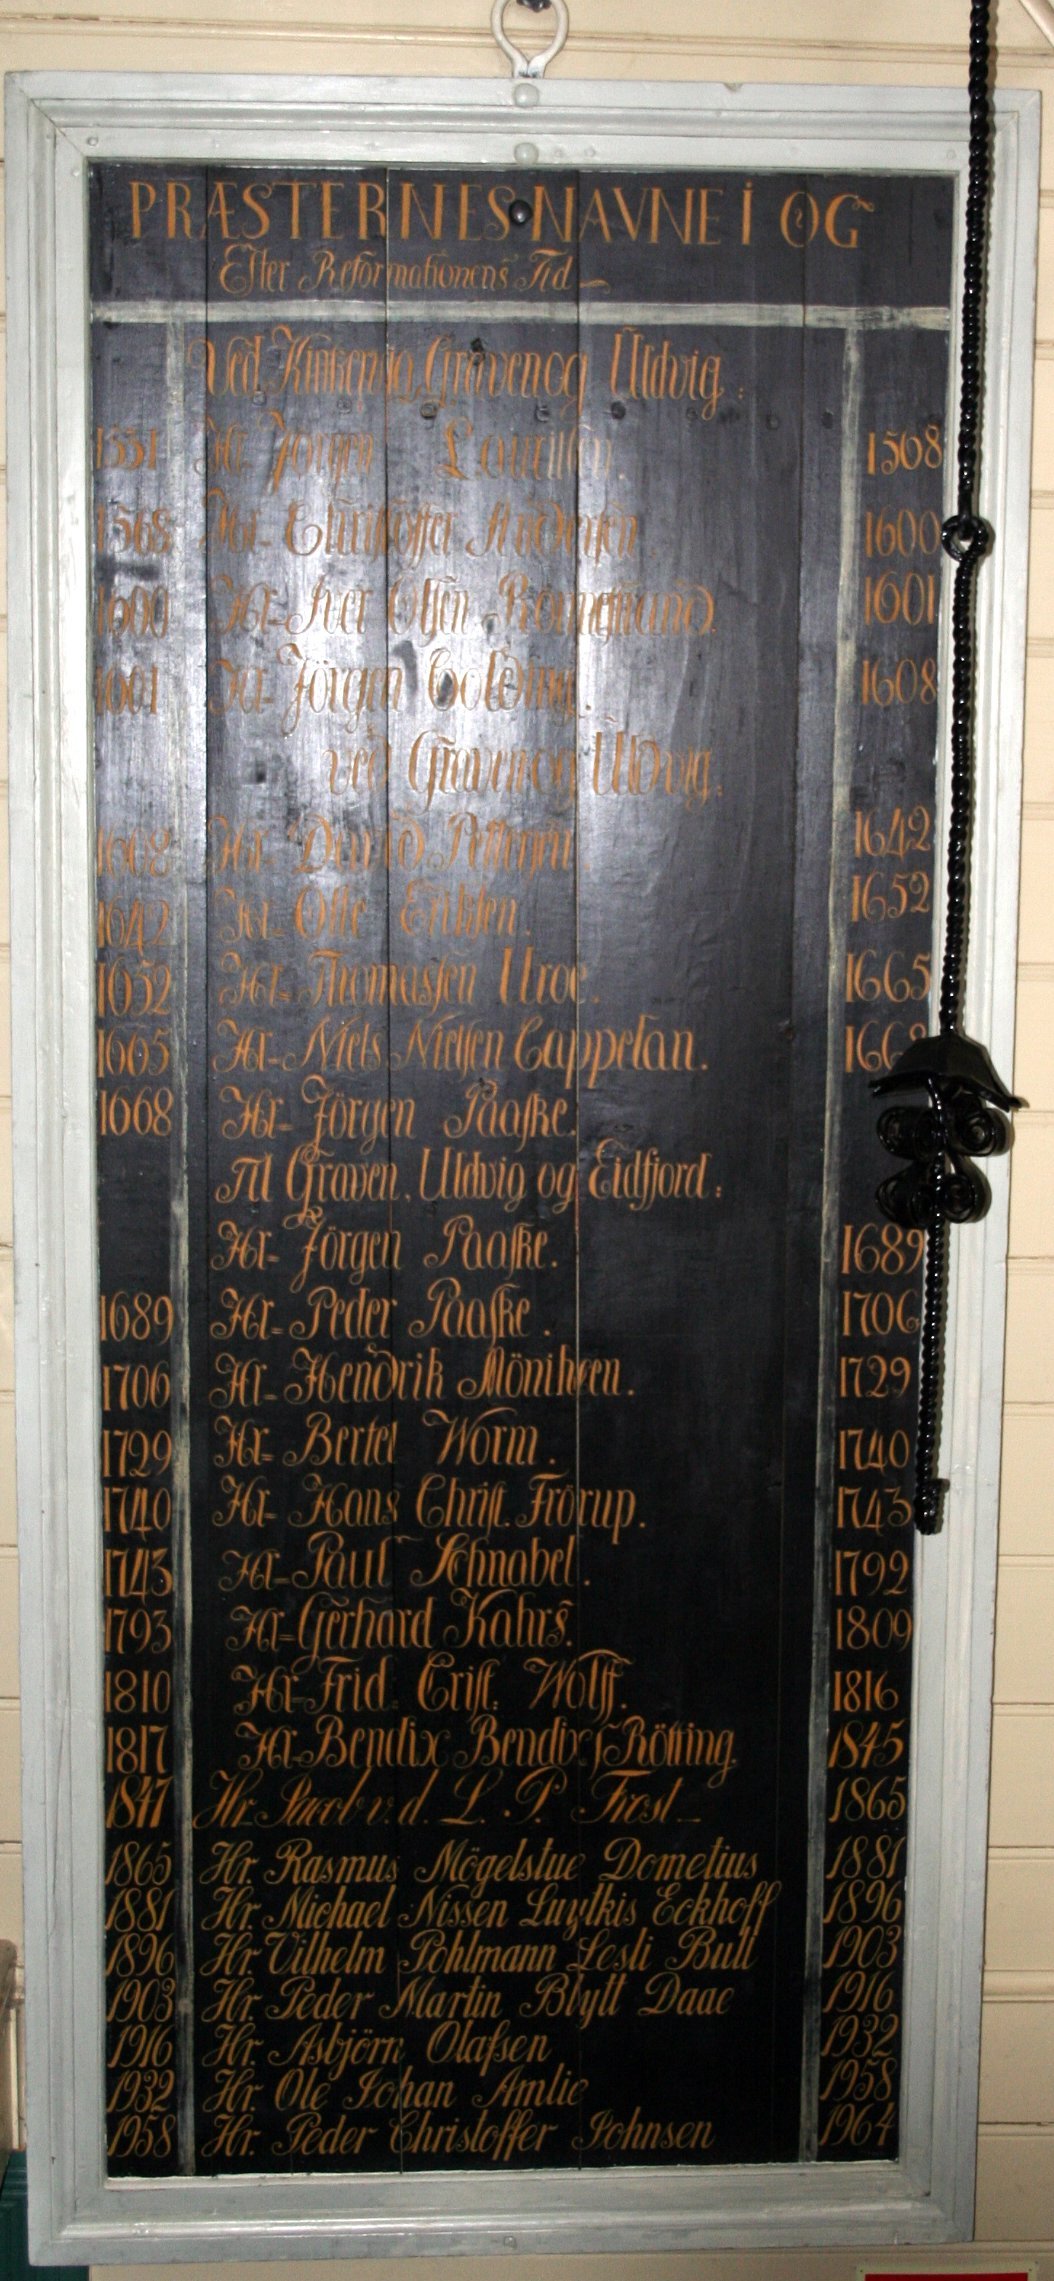 PRÆSTERNES NAVNE I OG
Efter Reformationens Tid
Ved Kinservig, Graven og Uldvig:
1551 Hr. Jörgen Lauritsen. 1568
1568 Hr. Christoffer Andersen. 1600
1600 Hr. Iver Olsen 1601
1601 Hr. Jörgen Colding. 1608
ved Graven og Uldvig:
1608 Hr. David Pettersen 1642
1642 Hr. Offe Eriksen. 1652
1652 Hr. Thomassen Uroe. 1665
1665 Hr. Niels Nielsen Cappelan. 1668
1668 Hr. Jörgen Paaske.
Til Graven, Uldvig og Eidfjord:
Hr. Jörgen Paaske. 1689
1689 Hr. Peder Paaske. 1706
1706 Hr. Hendrik Möniheen. 1729
1729 Hr. Bertel Worm. 1740
1740 Hr. Hans Christ. Frörup. 1743
1743 Hr. Paul Schnabel. 1792
1793 Hr. Gerhard Kahrs. 1809
1810 Hr. Frid. Crist. Wolff. 1816
1817 Hr. Bendix Bendixs Rötting. 1845
1847 Hr. Jacob v. d. L. P. Frost 1865
1865 Hr. Rasmus Mögelstue Dometius 1881
1881 Hr. Michael Nissen Luytkis Eckhoff 1896
1896 Hr. Vilhelm Pohlmann Lesli Bull 1903
1903 Hr. Peder Martin Blytt Daae 1916
1916 Hr. Asbjörn Olafsen 1932
1932 Hr. Ole Johan Amlie 1958
1958 Hr. Peder Christoffer Johnsen 1964